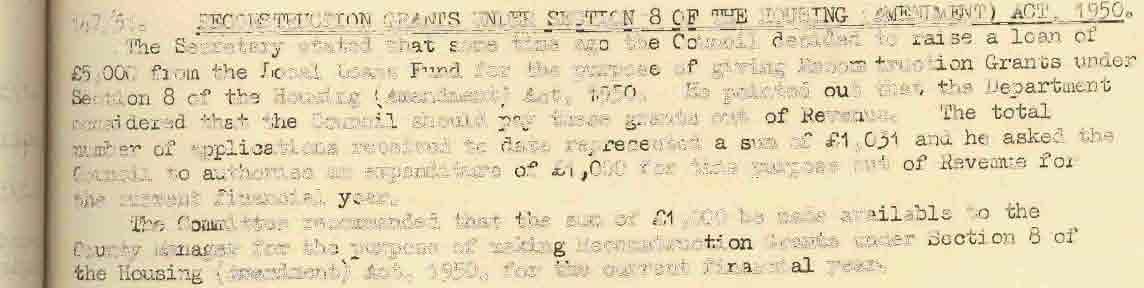 147/51. RECONSTRUCTION GRANTS UNDER SECTION 8 OF THE HOUSING (AMENDMENT) ACT, 1950.
The Secretary stated that some time ago the Council decided to raise a loan of
£5,000 from the Local Loans Fund for the purpose of giving Reconstruction Grants under
Section 8 of the Housing (Amendment) Act, 1950. He pointed out that the Department
considered that the Council should pay these grants out of Revenue. The total
number of applications received to date represented a sum of £1,031 and he asked the
Council to authorise an expenditure of £1,000 for this purpose out of Revenue for
the current financial year.
The Committee recommended that the sum of £1,000 be made available to the
County Manager for the purpose of making Reconstruction Grants under Section 8 of
the Housing (Amendment) Act, 1950, for the current financial year.